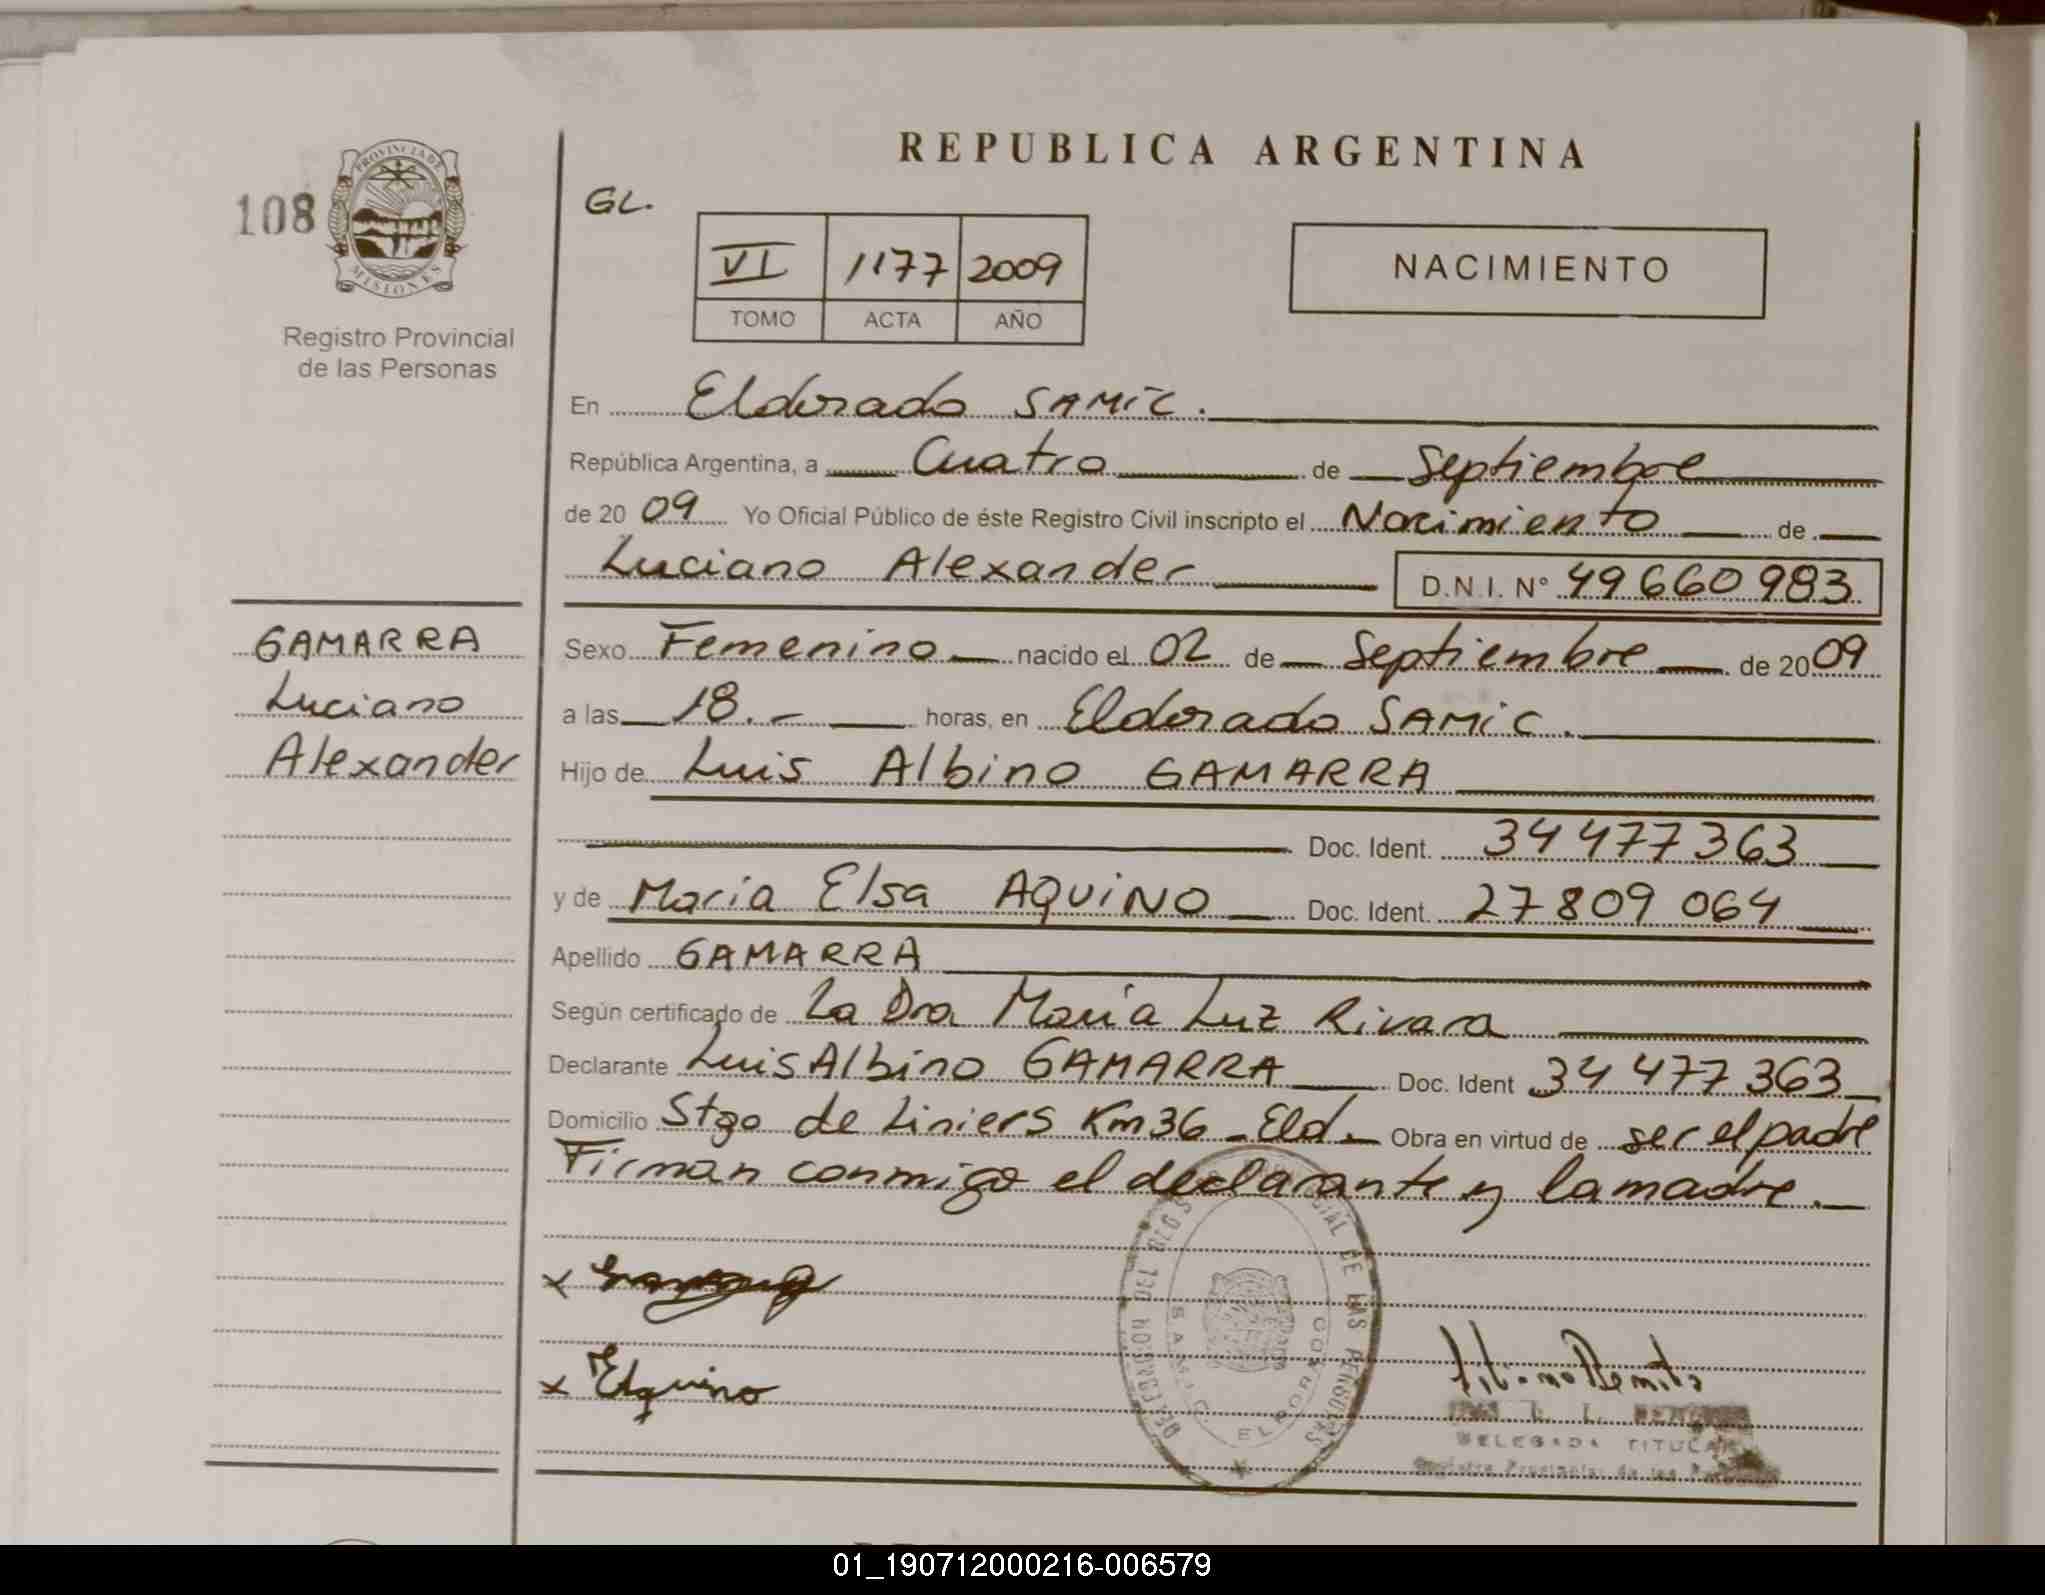 REPUBLICA ARGENTINA
108
PROVINCIA DE
MISIONES
Registro Provincial
de las Personas
GL.
VI 1177 2009
TOMO ACTA AÑO
NACIMIENTO
En Eldorado SAMIC.
República Argentina, a Cuatro de Septiembre
de 20 09 Yo Oficial Público de éste Registro Civil inscripto el Nacimiento de
Luciano Alexander D.N.I. Nº 49660983
GAMARRA
Luciano
Alexander
Sexo Femenino nacido el 02 de Septiembre de 2009
a las 18.- horas, en Eldorado SAMIC.
Hijo de Luis Albino GAMARRA
Doc. Ident. 34 477 363
y de Maria Elsa AQUINO Doc. Ident. 27 809 064
Apellido GAMARRA
Según certificado de La Dra María Luz Rivara
Declarante Luis Albino GAMARRA Doc. Ident 34 477 363
Domicilio Stgo de Liniers Km 36 - Eld. Obra en virtud de ser el padre
Firman conmigo el declarante y la madre.
x
x Equino
DE LAS PERSONAS
S.A.M.I.C. ELDORADO
DELEGADA TITULAR
Registro Provincial de las
01_190712000216-006579